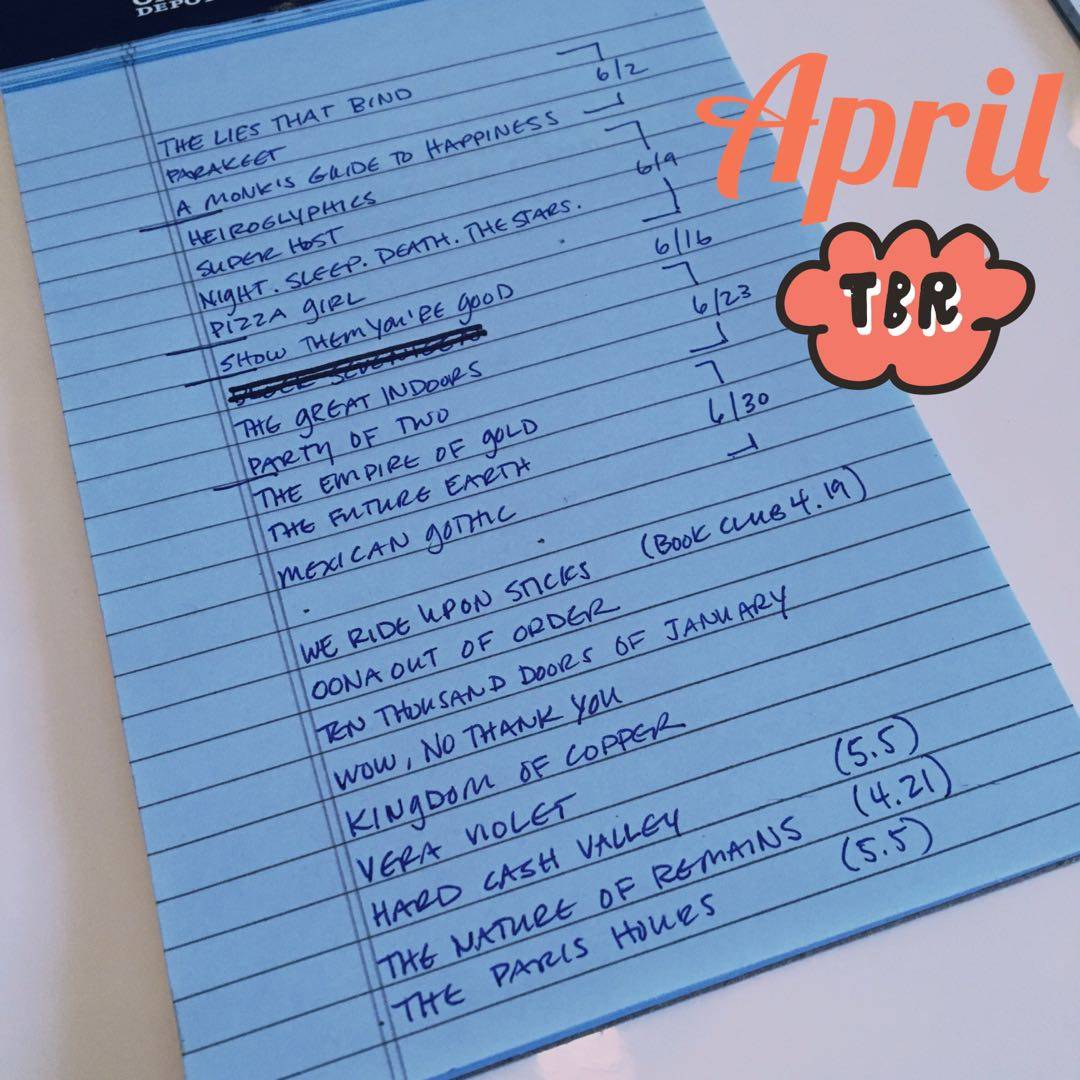 DEPOT
April
TBR
THE LIES THAT BIND
PARAKEET 6/2
A MONK'S GUIDE TO HAPPINESS
HEIROGLYPHICS
SUPER HOST 6/9
NIGHT. SLEEP. DEATH. THE STARS.
PIZZA GIRL 6/16
SHOW THEM YOU'RE GOOD
THE GREAT INDOORS 6/23
PARTY OF TWO
THE EMPIRE OF GOLD
THE FUTURE EARTH 6/30
MEXICAN GOTHIC
WE RIDE UPON STICKS (BOOK CLUB 4.19)
OONA OUT OF ORDER
TEN THOUSAND DOORS OF JANUARY
WOW, NO THANK YOU
KINGDOM OF COPPER
VERA VIOLET
HARD CASH VALLEY (5.5)
THE NATURE OF REMAINS (4.21)
THE PARIS HOURS (5.5)